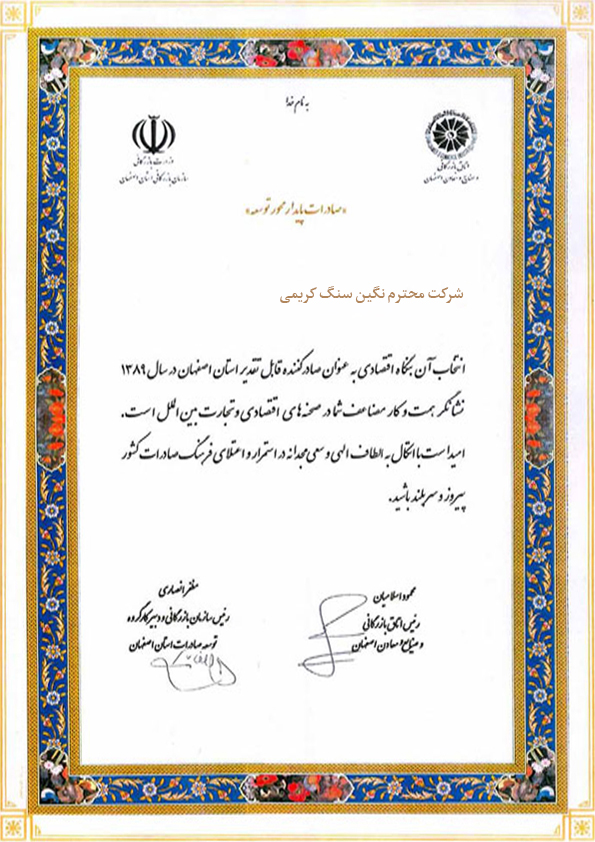 به نام خدا
وزارت بازرگانی
سازمان بازرگانی استان اصفهان
اتاق بازرگانی
و صنایع و معادن اصفهان
«صادرات پایدار محور توسعه»
شرکت محترم نگین سنگ کریمی
انتخاب آن بنگاه اقتصادی به عنوان صادرکننده قابل تقدیر استان اصفهان در سال ۱۳۸۹
نشانگر همت و کار مضاعف شما در صحنه های اقتصادی و تجارت بین الملل است.
امید است با اتکال به الطاف الهی و سعی مجدانه در استمرار و اعتلای فرهنگ صادرات کشور
پیروز و سربلند باشید.
محمود اسلامیان
رئیس اتاق بازرگانی
و صنایع و معادن اصفهان
مظفر انصاری
رئیس سازمان بازرگانی و دبیر کارگروه
توسعه صادرات استان اصفهان